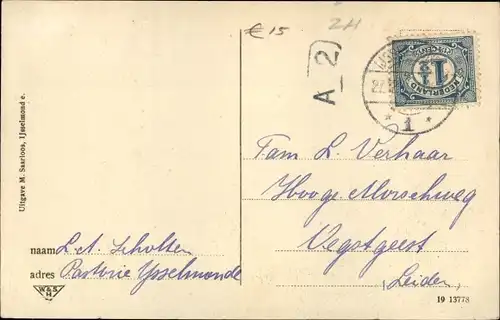 € 15
2H
A 2
NEDERLAND
1½
CENT
1
Uitgave M. Saarloos, IJsselmond e.
Fam L. Verhaar
Hooge Morschweg
Oegstgeest
(Leiden)
naam L. A. Scholten
adres Pastorie Ysselmonde
W&S
H
19 13778